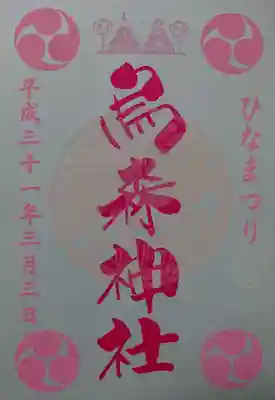 ひなまつり
烏森神社
平成三十一年三月三日